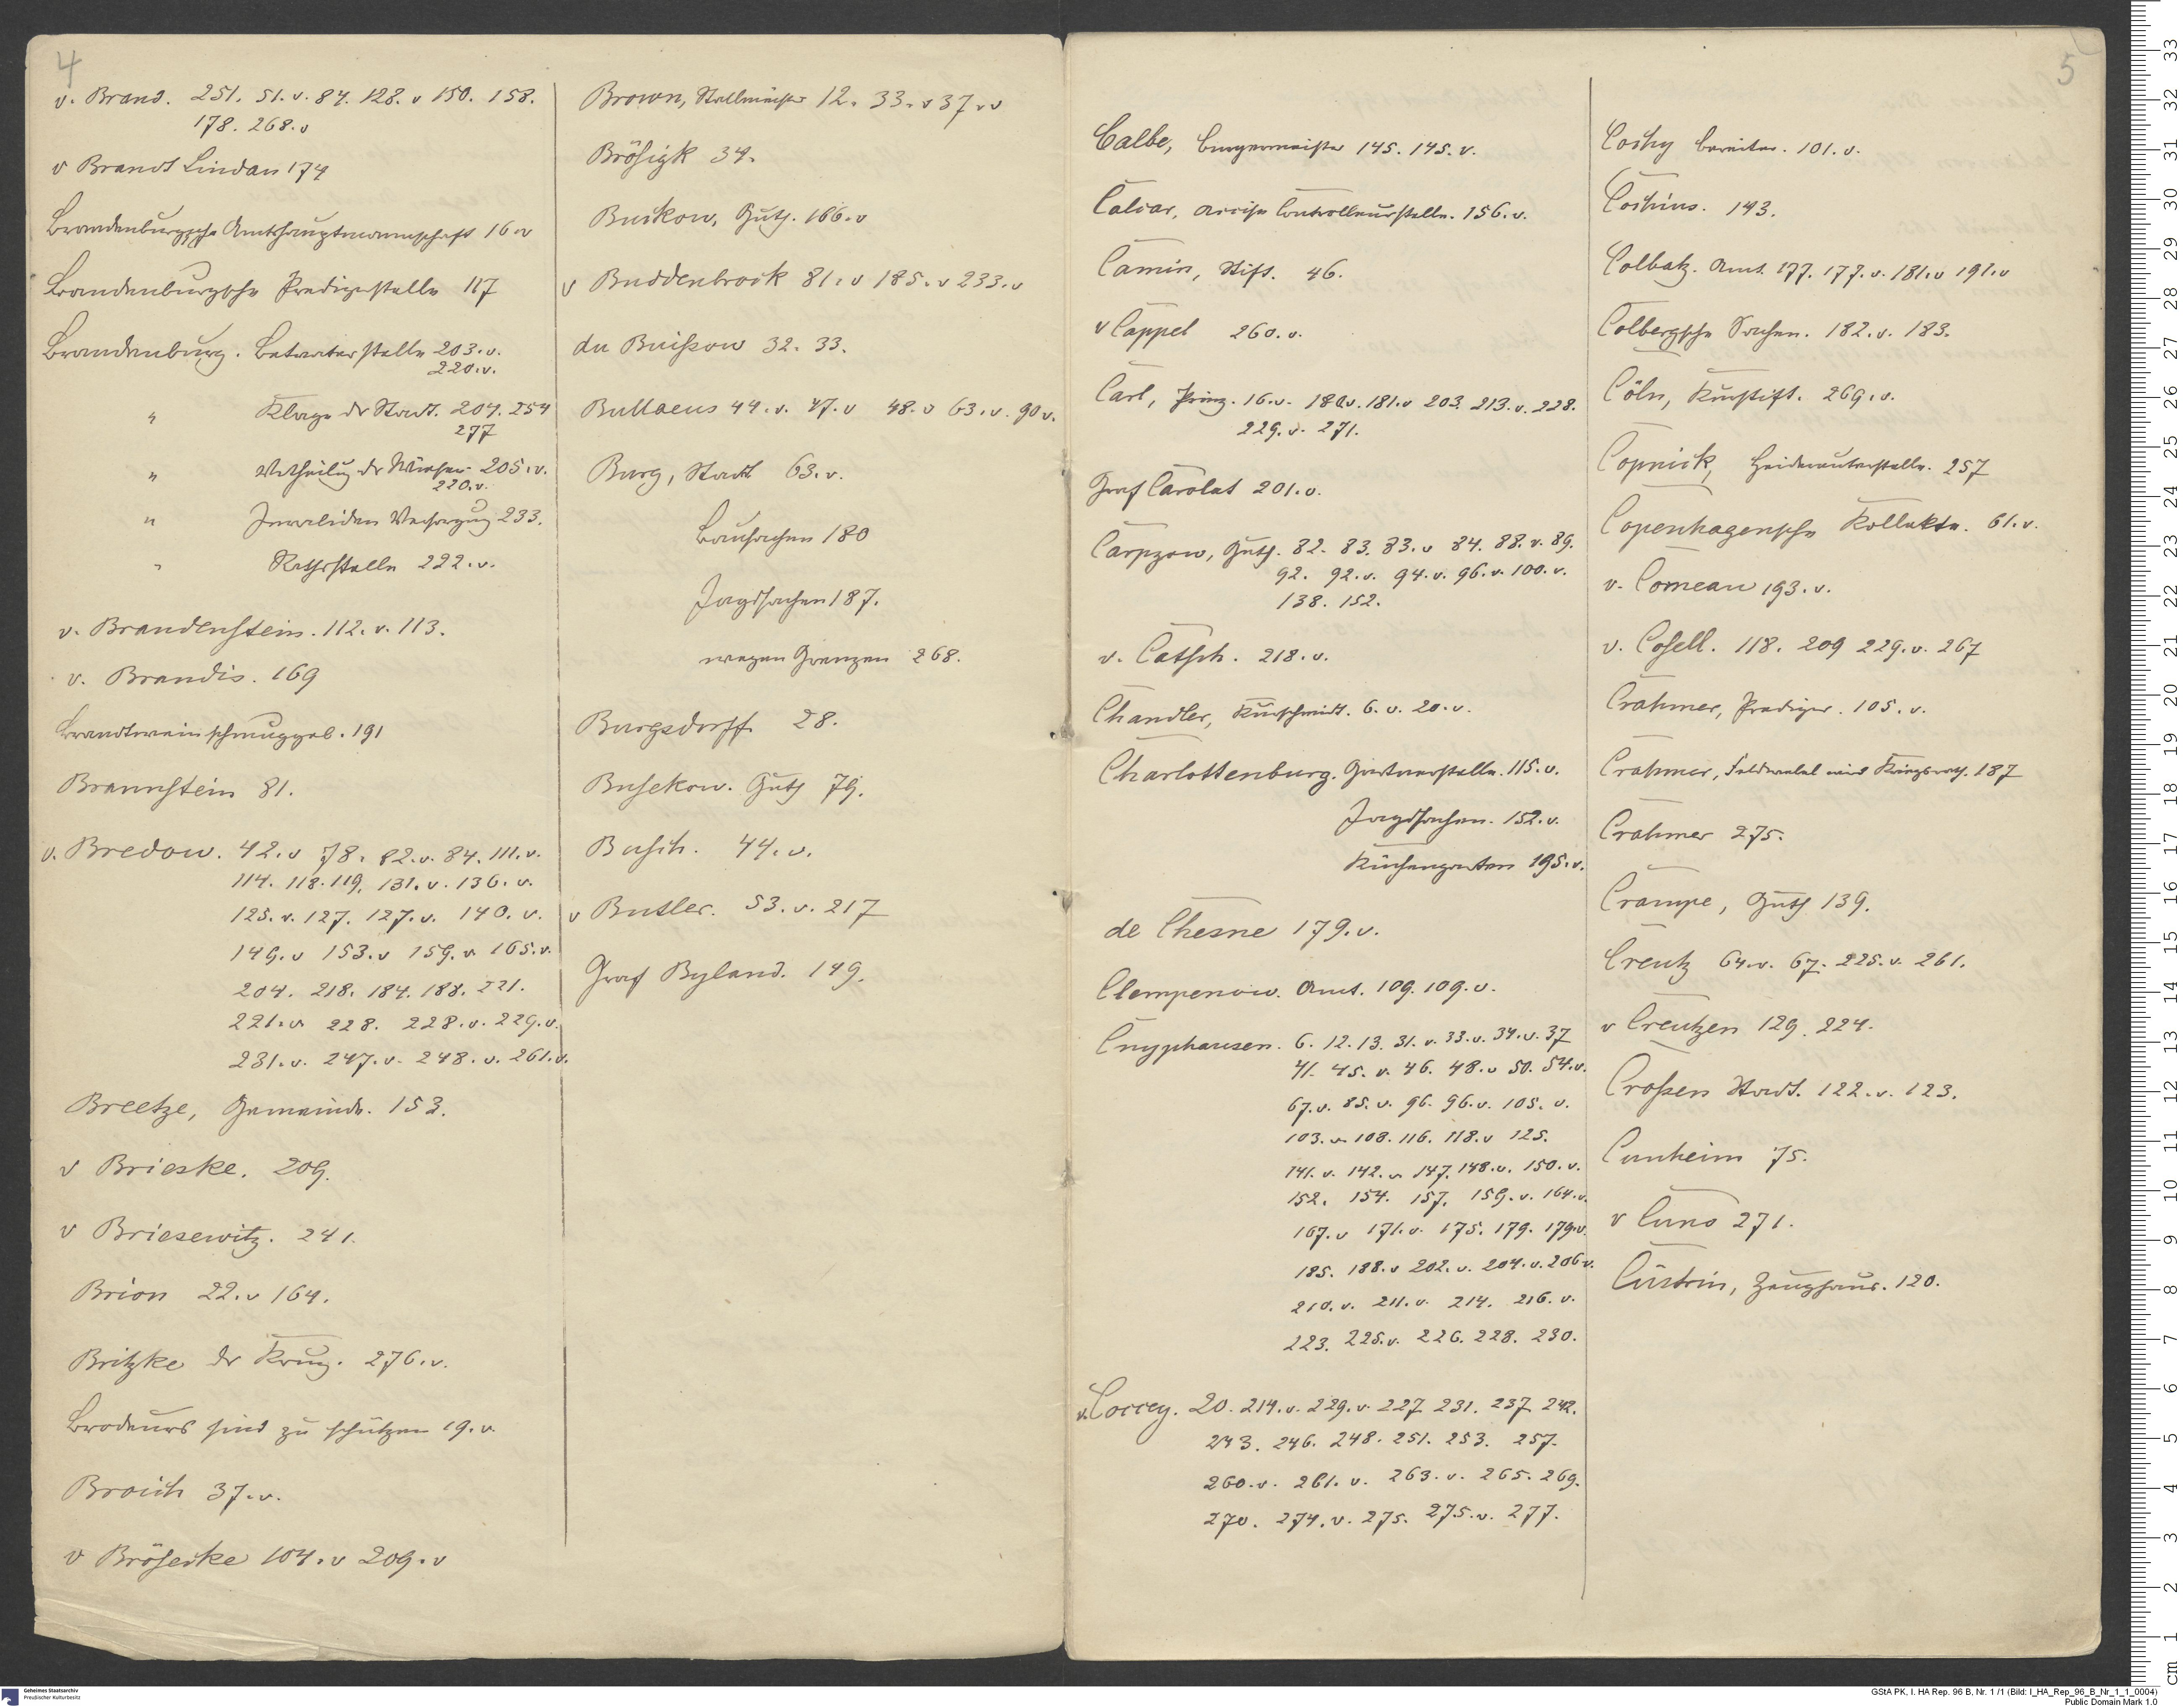 4
v. Brand. 251. 51. v. 84. 128. v 150. 158.
178. 268. v
v Brandt Lindau 174
Brandenburgsche Amtshauptmannschaft 16 v
Brandenburgsche Predigerstelle 117
Brandenburg. Betreuterstelle 203. v.
220. v.
" Klage der Stadt. 204. 254
277
" Vertheilung der Wiesen 205. v.
220. v.
" Invaliden Versorgung 233.
" Rathsstelle 222. v.
v. Brandenstein. 112. v. 113.
v. Brandis. 169
Brandtweinschmuggel. 191
Braunstein 81.
v. Bredow. 42. v 78. 82. v. 84. 111. v.
114. 118. 119. 131. v. 136. v.
125. v. 127. 127. v. 140. v.
149. v 153. v 159. v 165. v.
204. 218. 184. 188. 221.
221. v 228. 228. v. 229. v.
231. v. 247. v. 248. v. 261. v.
Breetze, Gemeinde. 153.
v Brieske. 209.
v Briesewitz. 241.
Brion 22. v 164.
Britzke der Krug. 276. v.
Brodeurs sind zu schützen 19. v.
Broich 37. v.
v Brösecke 104. v 209. v
Brown, Stallmeister 12. 33. v 37. v
Brösigk 34.
Buckow, Guth. 166. v
v Buddenbrock 81. v 185. v 233. v
du Buisson 32. 33.
Bullaeus 44. v. 47. v 48. v 63. v. 90 v.
Burg, Stadt 63. v.
Bausachen 180
Jagdsachen 187.
wegen Grenzen 268.
Burgsdorff 28.
Busekow. Guth 79.
Busch. 44. v.
v Butler. 53. v. 217
Graf Byland. 149.
5
Calbe, Burgermeister 145. 145. v.
Calcar, Accise Controlleurstelle. 156. v.
Camin, Stift. 46.
v Cappel 260. v.
Carl, Prinz. 16. v. 180 v. 181. v 203. 213. v. 228.
229. v. 271.
Graf Carolat 201. v.
Carpzow, Guth. 82. 83. 83. v 84. 88. v. 89.
92. 92. v. 94. v. 96. v. 100. v.
138. 152.
v. Catsch. 218. v.
Chandler, Kurschmidt. 6. v. 20. v.
Charlottenburg. Gärtnerstelle. 115. v.
Jagdsachen. 152. v.
Küchengarten 195. v.
de Chesne 179. v.
Clempenow. Amt. 109. 109. v.
Cnyphausen. 6. 12. 13. 31. v. 33. v. 34. v. 37
41. 45. v. 46. 48. v 50. 54. v.
67. v. 85. v. 96. 96. v. 105. v.
103. v 108. 116. 118. v 125.
141. v. 142. v 147. 148. v. 150. v.
152. 154. 157. 159. v. 164. v.
167. v 171. v. 175. 179. 179. v.
185. 188. v 202. v. 204. v. 206 v.
210. v. 211. v. 214. 216. v.
223. 225. v. 226. 228. 230.
v. Coccey. 20. 214. v. 229. v. 227 231. 237 242.
243. 246. 248. 251. 253. 257.
260. v. 261. v. 263. v. 265. 269.
270. 274. v. 275. 275. v. 277.
Cochy Bereiter. 101. v.
Cochius. 143.
Colbatz. Amt. 177. 177. v. 181. v 191. v
Colbergsche Sachen. 182. v. 183.
Cöln, Kurstift. 269. v.
Copnick, Heidereuterstelle. 257
Copenhagensche Kollekte. 61. v.
v. Corneau 193. v.
v. Cosell. 118. 209 229. v. 267
Crahmer, Prediger. 105. v.
Crahmer, Feldwebel wird Kriegsrath. 187
Crahmer 275.
Crampe, Guth 139.
Creutz 64. v. 67. 225. v. 261.
v Creutzen 129. 224.
Crossen Stadt. 122. v. 123.
Cunheim 75.
v Cuno 271.
Cüstrin, Zeughaus. 120.
33
32
31
30
29
28
27
26
25
24
23
22
21
20
19
18
17
16
15
14
13
12
11
10
9
8
7
6
5
4
3
2
1
cm
Geheimes Staatsarchiv
Preußischer Kulturbesitz
GStA PK, I. HA Rep. 96 B, Nr. 1 /1 (Bild: I_HA_Rep_96_B_Nr_1_1_0004)
Public Domain Mark 1.0